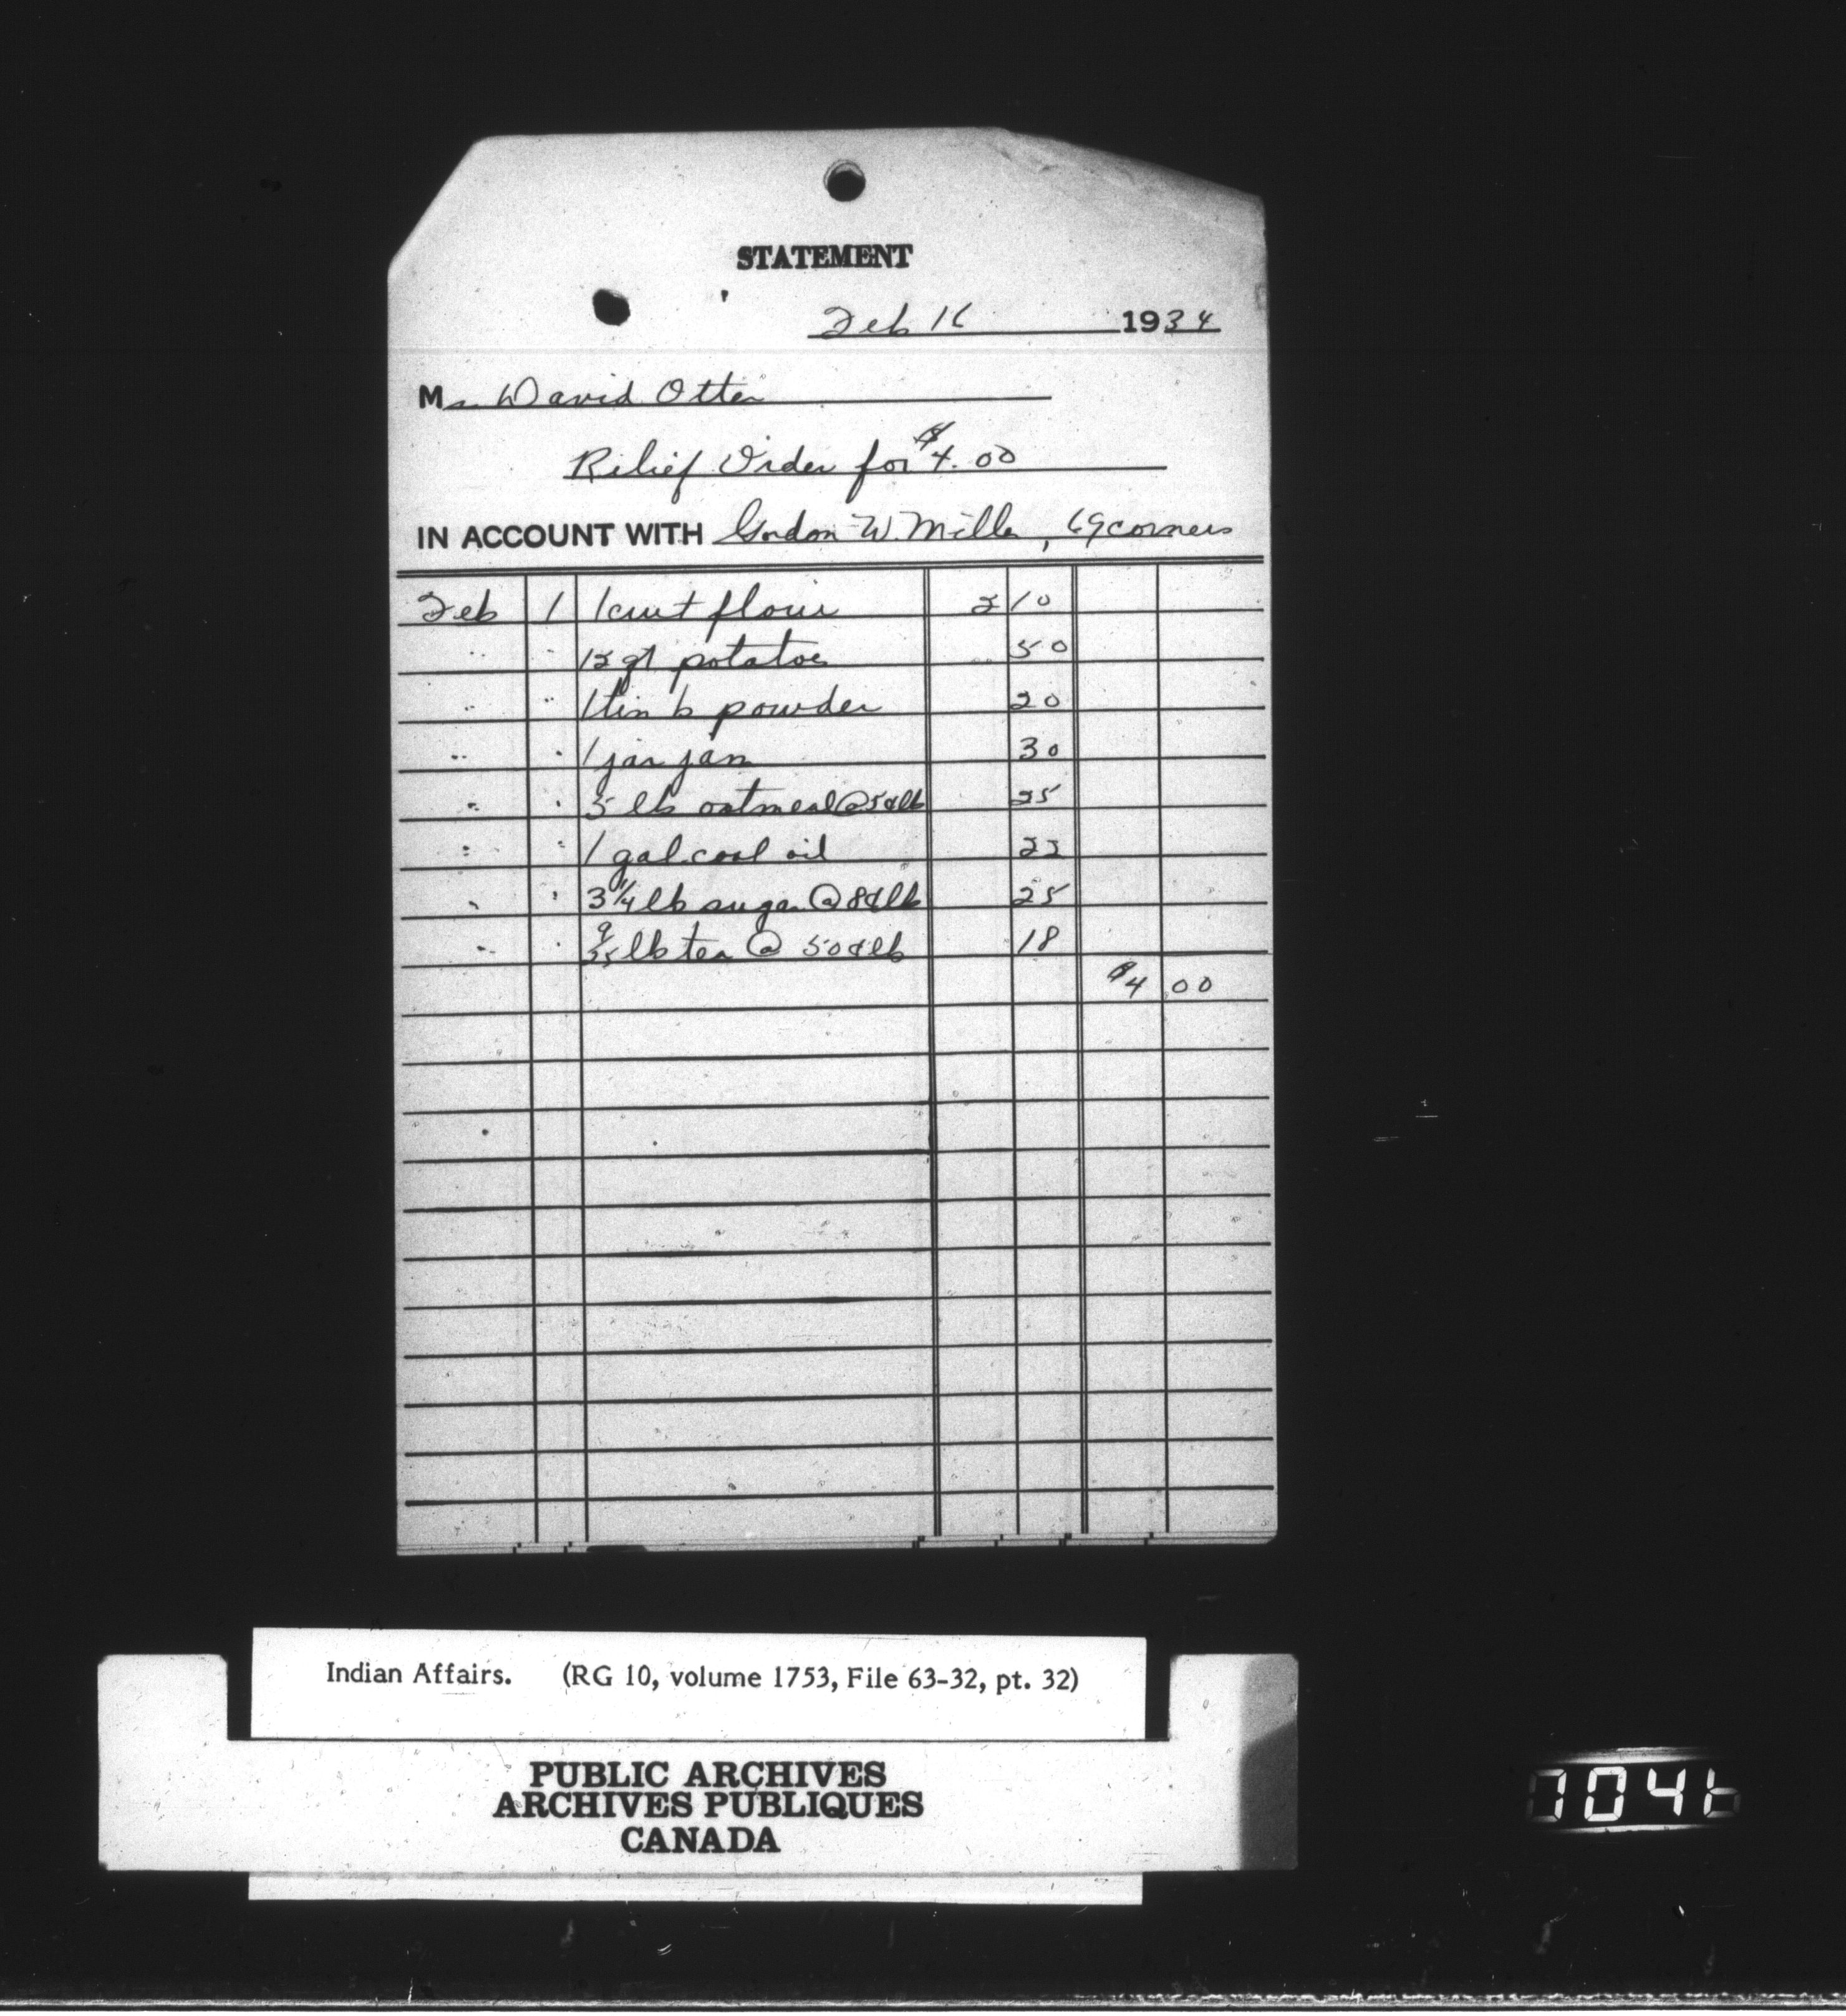 STATEMENT
Feb 16 1934
Mr David Otter
Relief Order for $4.00
IN ACCOUNT WITH Gordon W. Miller, 69 corners
Feb 1 1 cwt flour 2 10
" " 12 qt potatoes 50
" " 1 tin b powder 20
" " 1 jar jam 30
" " 5 lb oatmeal @ 5¢ lb 25
" " 1 gal. coal oil 22
" " 3 1/4 lb sugar @ 8¢ lb 25
" " 9/25 lb tea @ 50¢ lb 18
$4 00
Indian Affairs. (RG 10, volume 1753, File 63-32, pt. 32)
PUBLIC ARCHIVES
ARCHIVES PUBLIQUES
CANADA